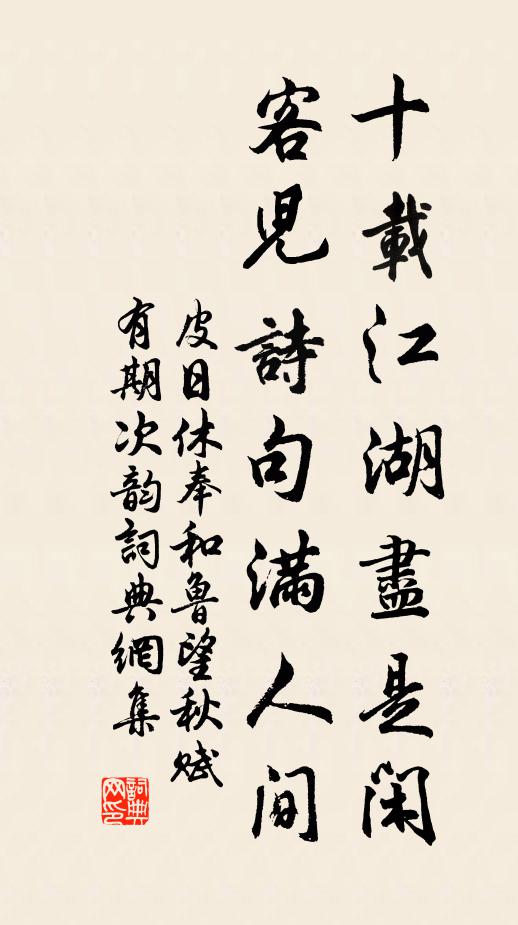 十載江湖盡是閑
客兒詩句滿人間
皮日休奉和魯望秋賦
有期次韵詞典網集
詞典
网印